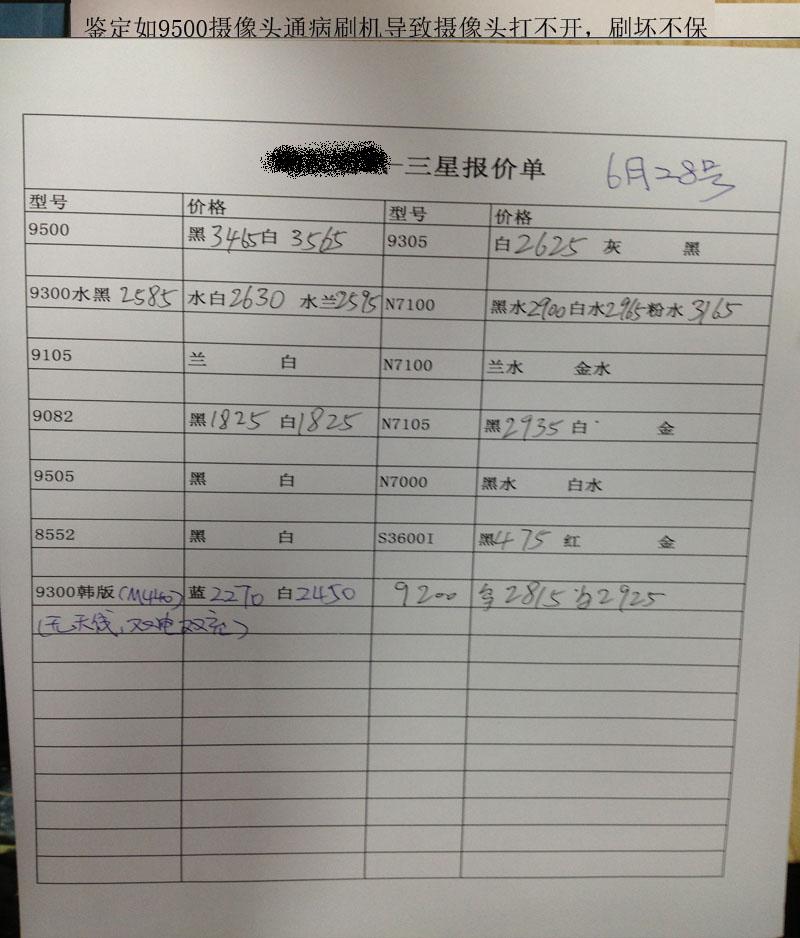 鉴定如9500摄像头通病刷机导致摄像头打不开，刷坏不保
一三星报价单 6月28号
型号 价格 型号 价格
9500 黑3465白 3565 9305 白2625 灰 黑
9300水黑 2585 水白2630 水兰2595 N7100 黑水2900白水2965粉水 3165
9105 兰 白 N7100 兰水 金水
9082 黑1825 白1825 N7105 黑2935 白 金
9505 黑 白 N7000 黑水 白水
8552 黑 白 S3600I 黑475 红 金
9300韩版(M440) 蓝2270 白2450 9200 2815 白2925
(无天线,双电双充)